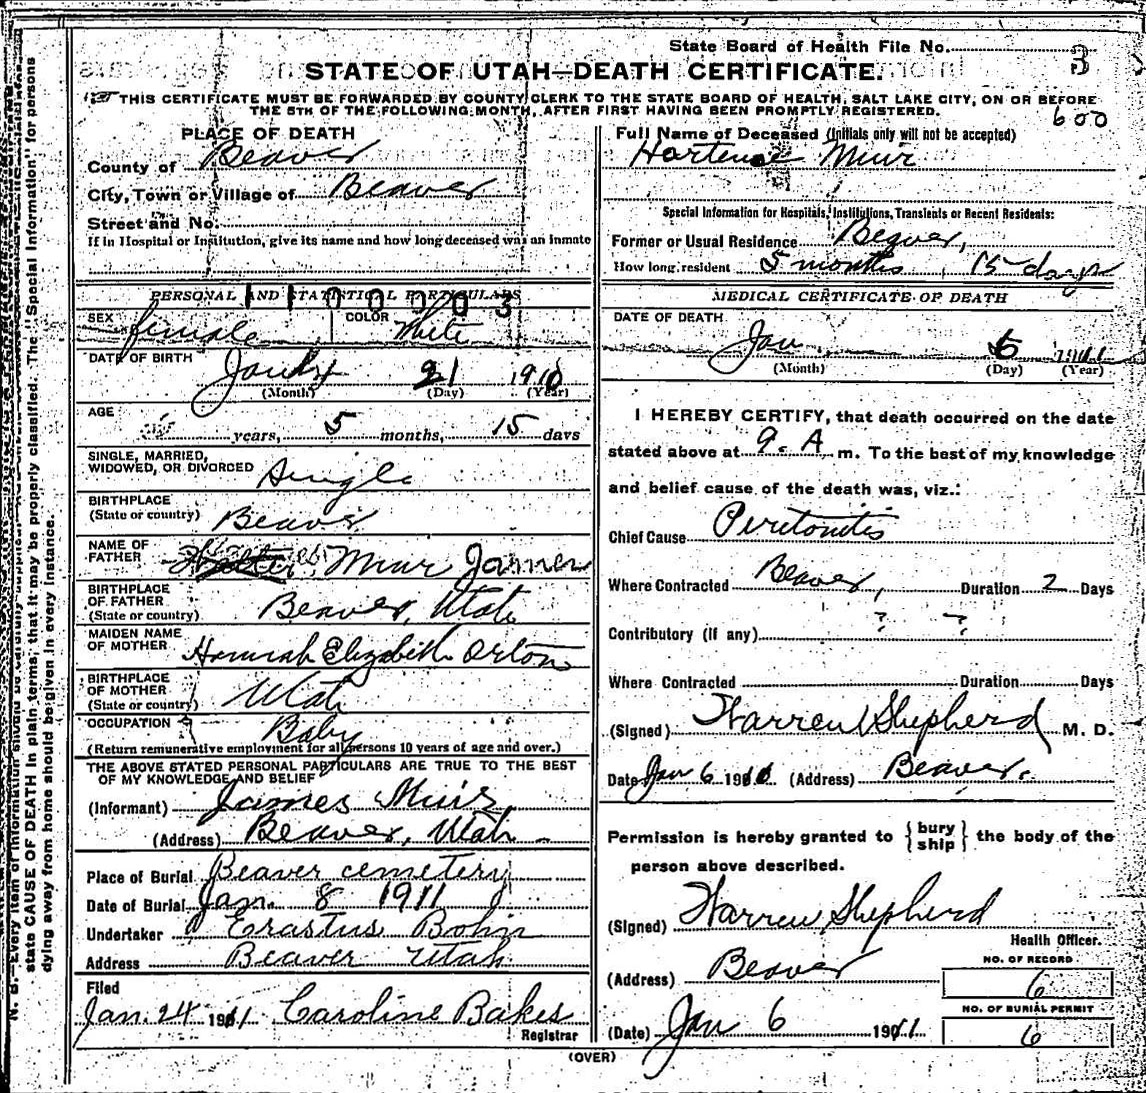 State Board of Health File No. 3
STATE OF UTAH—DEATH CERTIFICATE.
THIS CERTIFICATE MUST BE FORWARDED BY COUNTY CLERK TO THE STATE BOARD OF HEALTH, SALT LAKE CITY, ON OR BEFORE
THE 5TH OF THE FOLLOWING MONTH, AFTER FIRST HAVING BEEN PROMPTLY REGISTERED.
600
PLACE OF DEATH
County of Beaver
City, Town or Village of Beaver
Street and No.
If in Hospital or Institution, give its name and how long deceased was an Inmate
PERSONAL AND STATISTICAL PARTICULARS
SEX female COLOR White
DATE OF BIRTH 21 1910
(Month) (Day) (Year)
AGE years, 5 months, 15 days
SINGLE, MARRIED,
WIDOWED, OR DIVORCED Single
BIRTHPLACE
(State or country) Beaver
NAME OF
FATHER Muir James
BIRTHPLACE
OF FATHER
(State or country) Beaver, Utah
MAIDEN NAME
OF MOTHER Hannah Elizabeth Orton
BIRTHPLACE
OF MOTHER
(State or country) Utah
OCCUPATION Baby
(Return remunerative employment for all persons 10 years of age and over.)
THE ABOVE STATED PERSONAL PARTICULARS ARE TRUE TO THE BEST
OF MY KNOWLEDGE AND BELIEF
(Informant) James Muir
(Address) Beaver, Utah
Place of Burial Beaver cemetery
Date of Burial Jan. 8 1911
Undertaker Erastus Bohn
Address Beaver Utah
Filed
Jan. 24 1911 Caroline Bakes
Registrar
Full Name of Deceased (Initials only will not be accepted)
Hartense Muir
Special Information for Hospitals, Institutions, Transients or Recent Residents:
Former or Usual Residence Beaver,
How long resident 5 months, 15 days
MEDICAL CERTIFICATE OF DEATH
DATE OF DEATH
Jan 6 1911
(Month) (Day) (Year)
I HEREBY CERTIFY, that death occurred on the date
stated above at 9. A m. To the best of my knowledge
and belief cause of the death was, viz.:
Chief Cause Peritonitis
Where Contracted Beaver, Duration 2 Days
Contributory (if any) ? ?
Where Contracted Duration Days
(Signed) Warren Shepherd M. D.
Date Jan 6 1911 (Address) Beaver.
Permission is hereby granted to {bury ship} the body of the
person above described.
(Signed) Warren Shepherd
Health Officer.
(Address) Beaver
NO. OF RECORD
6
NO. OF BURIAL PERMIT
6
(Date) Jan 6 1911
(OVER)
state CAUSE OF DEATH in plain terms, that it may be properly classified. The "Special Information" for persons
dying away from home should be given in every instance.